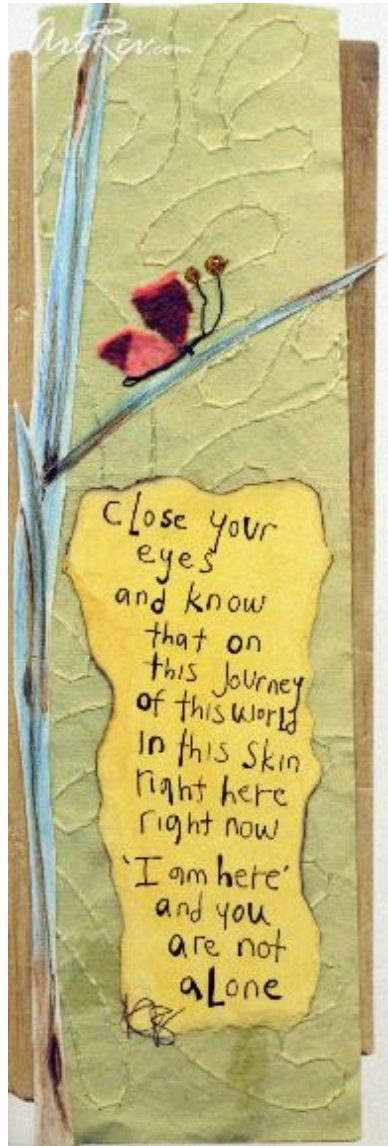 ArtRev.com
CLose your
eyes
and know
that on
this Journey
of this world
In this Skin
right here
right now
'I am here'
and you
are not
aLone